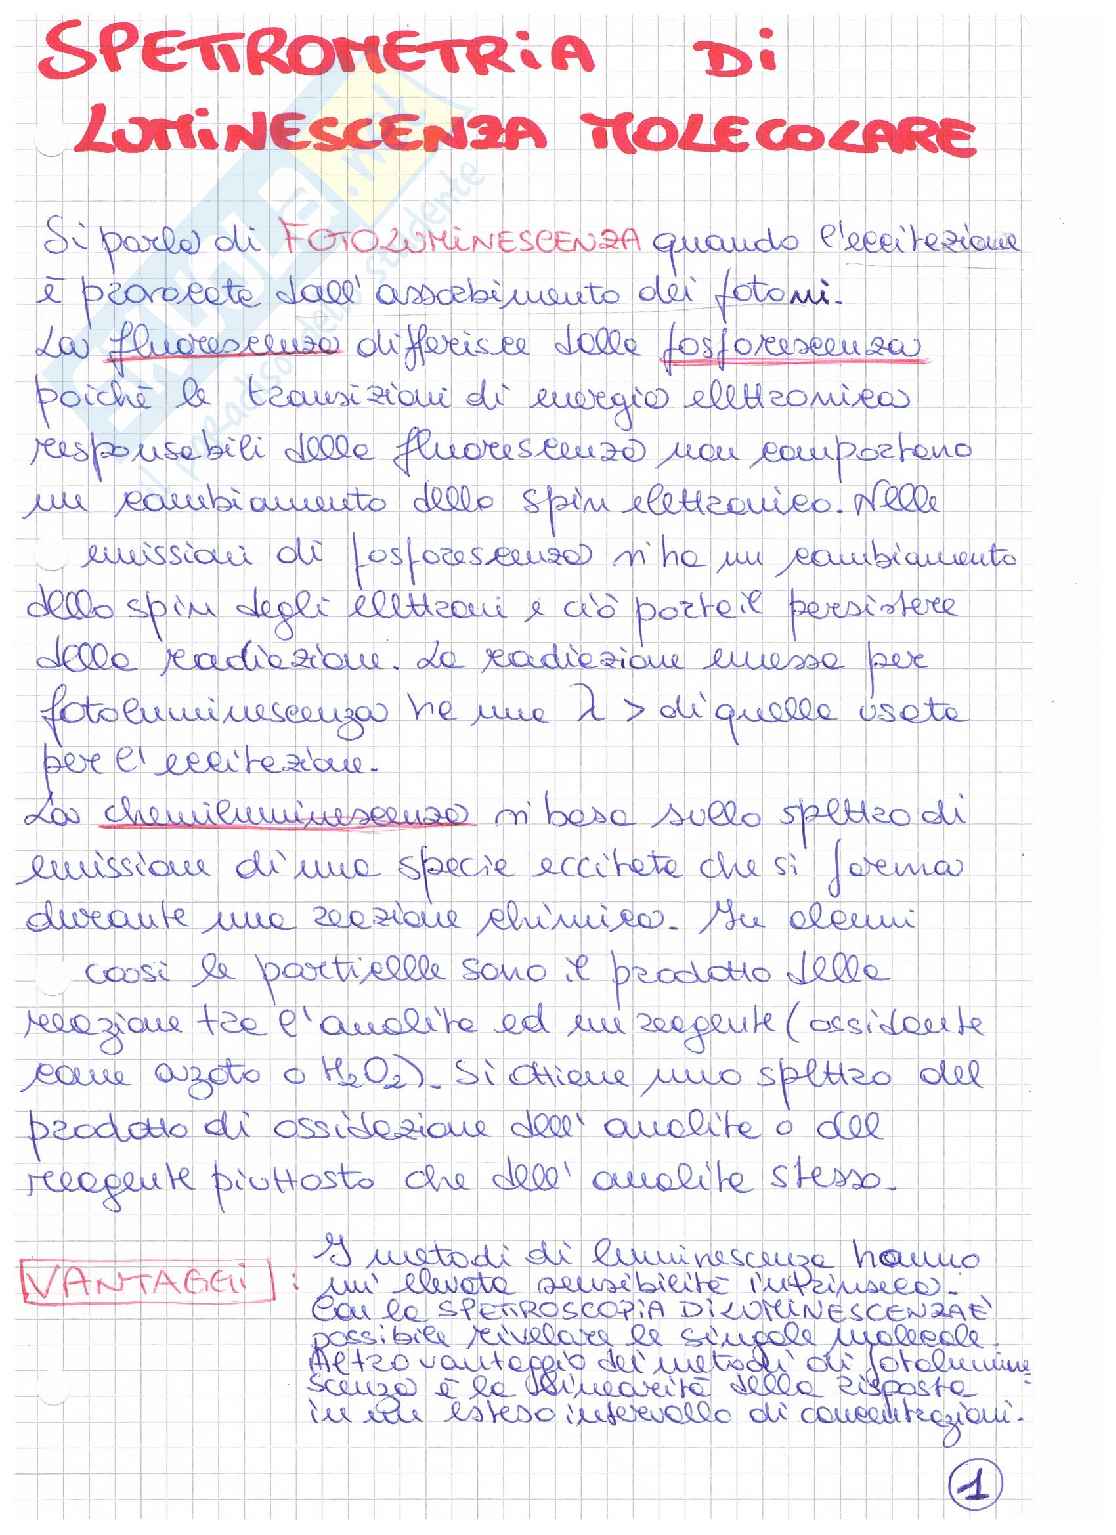 SPETTROMETRIA DI
LUMINESCENZA MOLECOLARE
Si parla di FOTOLUMINESCENZA quando l'eccitazione
è provocata dall'assorbimento dei fotoni.
La fluorescenza differisce dalla fosforescenza
poichè le transizioni di energia elettronica
responsabili della fluorescenza non comportano
un cambiamento dello spin elettronico. Nelle
emissioni di fosforescenza si ha un cambiamento
dello spin degli elettroni e ciò porta il persistere
della radiazione. La radiazione emessa per
fotoluminescenza ha una λ > di quella usata
per l'eccitazione.
La chemiluminescenza si basa sullo spettro di
emissione di una specie eccitata che si forma
durante una reazione chimica. In alcuni
casi le particelle sono il prodotto della
reazione tra l'analita ed un reagente (ossidante
come ozoto o H₂O₂). Si ottiene uno spettro del
prodotto di ossidazione dell'analita o del
reagente piuttosto che dell'analita stesso.
VANTAGGI : I metodi di luminescenza hanno
un'elevata sensibilità intrinseca.
Con la SPETTROSCOPIA DI LUMINESCENZA È
possibile rivelare le singole molecole.
Altro vantaggio dei metodi di fotolumine
scenza è la linearità della risposta
in un esteso intervallo di concentrazioni.
1